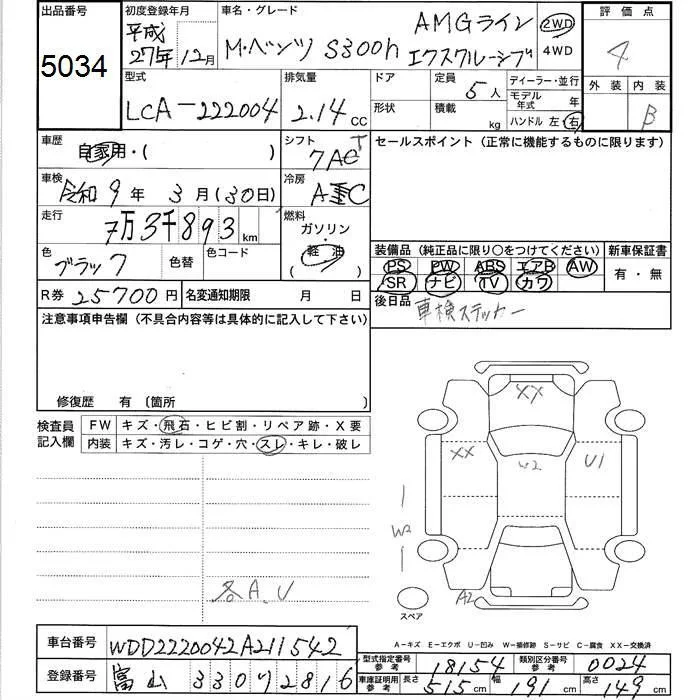 出品番号
5034
初度登録年月
平成
27年 12月
車名・グレード
M・ベンツ S300h
AMGライン
エクスクルーシブ
2WD
4WD
評価点
4
外装 内装
B
型式
LCA-222004
排気量
2.14 CC
ドア
形状
定員
5人
積載
kg
ディーラー・並行
モデル年式 年
ハンドル 左・右
車歴
自家用・( )
シフト
7AT
セールスポイント(正常に機能するものに限ります)
車検
令和9年 3月(30日)
冷房
AC
走行
7万3千893km
燃料
ガソリン
・
軽油
( )
色
ブラック
色替
色コード
装備品(純正品に限り○をつけてください)
新車保証書
PS PW ABS エアB AW
SR ナビ TV カワ
有・無
R券 25700円
名変通知期限 月 日
後日品
車検ステッカー
注意事項申告欄(不具合内容等は具体的に記入して下さい)
修復歴 有〔箇所 〕
検査員
記入欄
FW キズ・飛石・ヒビ割・リペア跡・X要
内装 キズ・汚レ・コゲ・穴・スレ・キレ・破レ
XX
XX
W2
U1
W2
A2
スペア
各A.U
A-キズ E-エクボ U-凹み W-補修跡 S-サビ C-腐食 XX-交換済
車台番号
WDD2220042A211542
登録番号
富山 330 ワ 2816
型式指定番号
参考
18154
類別区分番号
参考
0024
車庫証明用
参考
長さ 515cm 幅 191cm 高さ 149cm